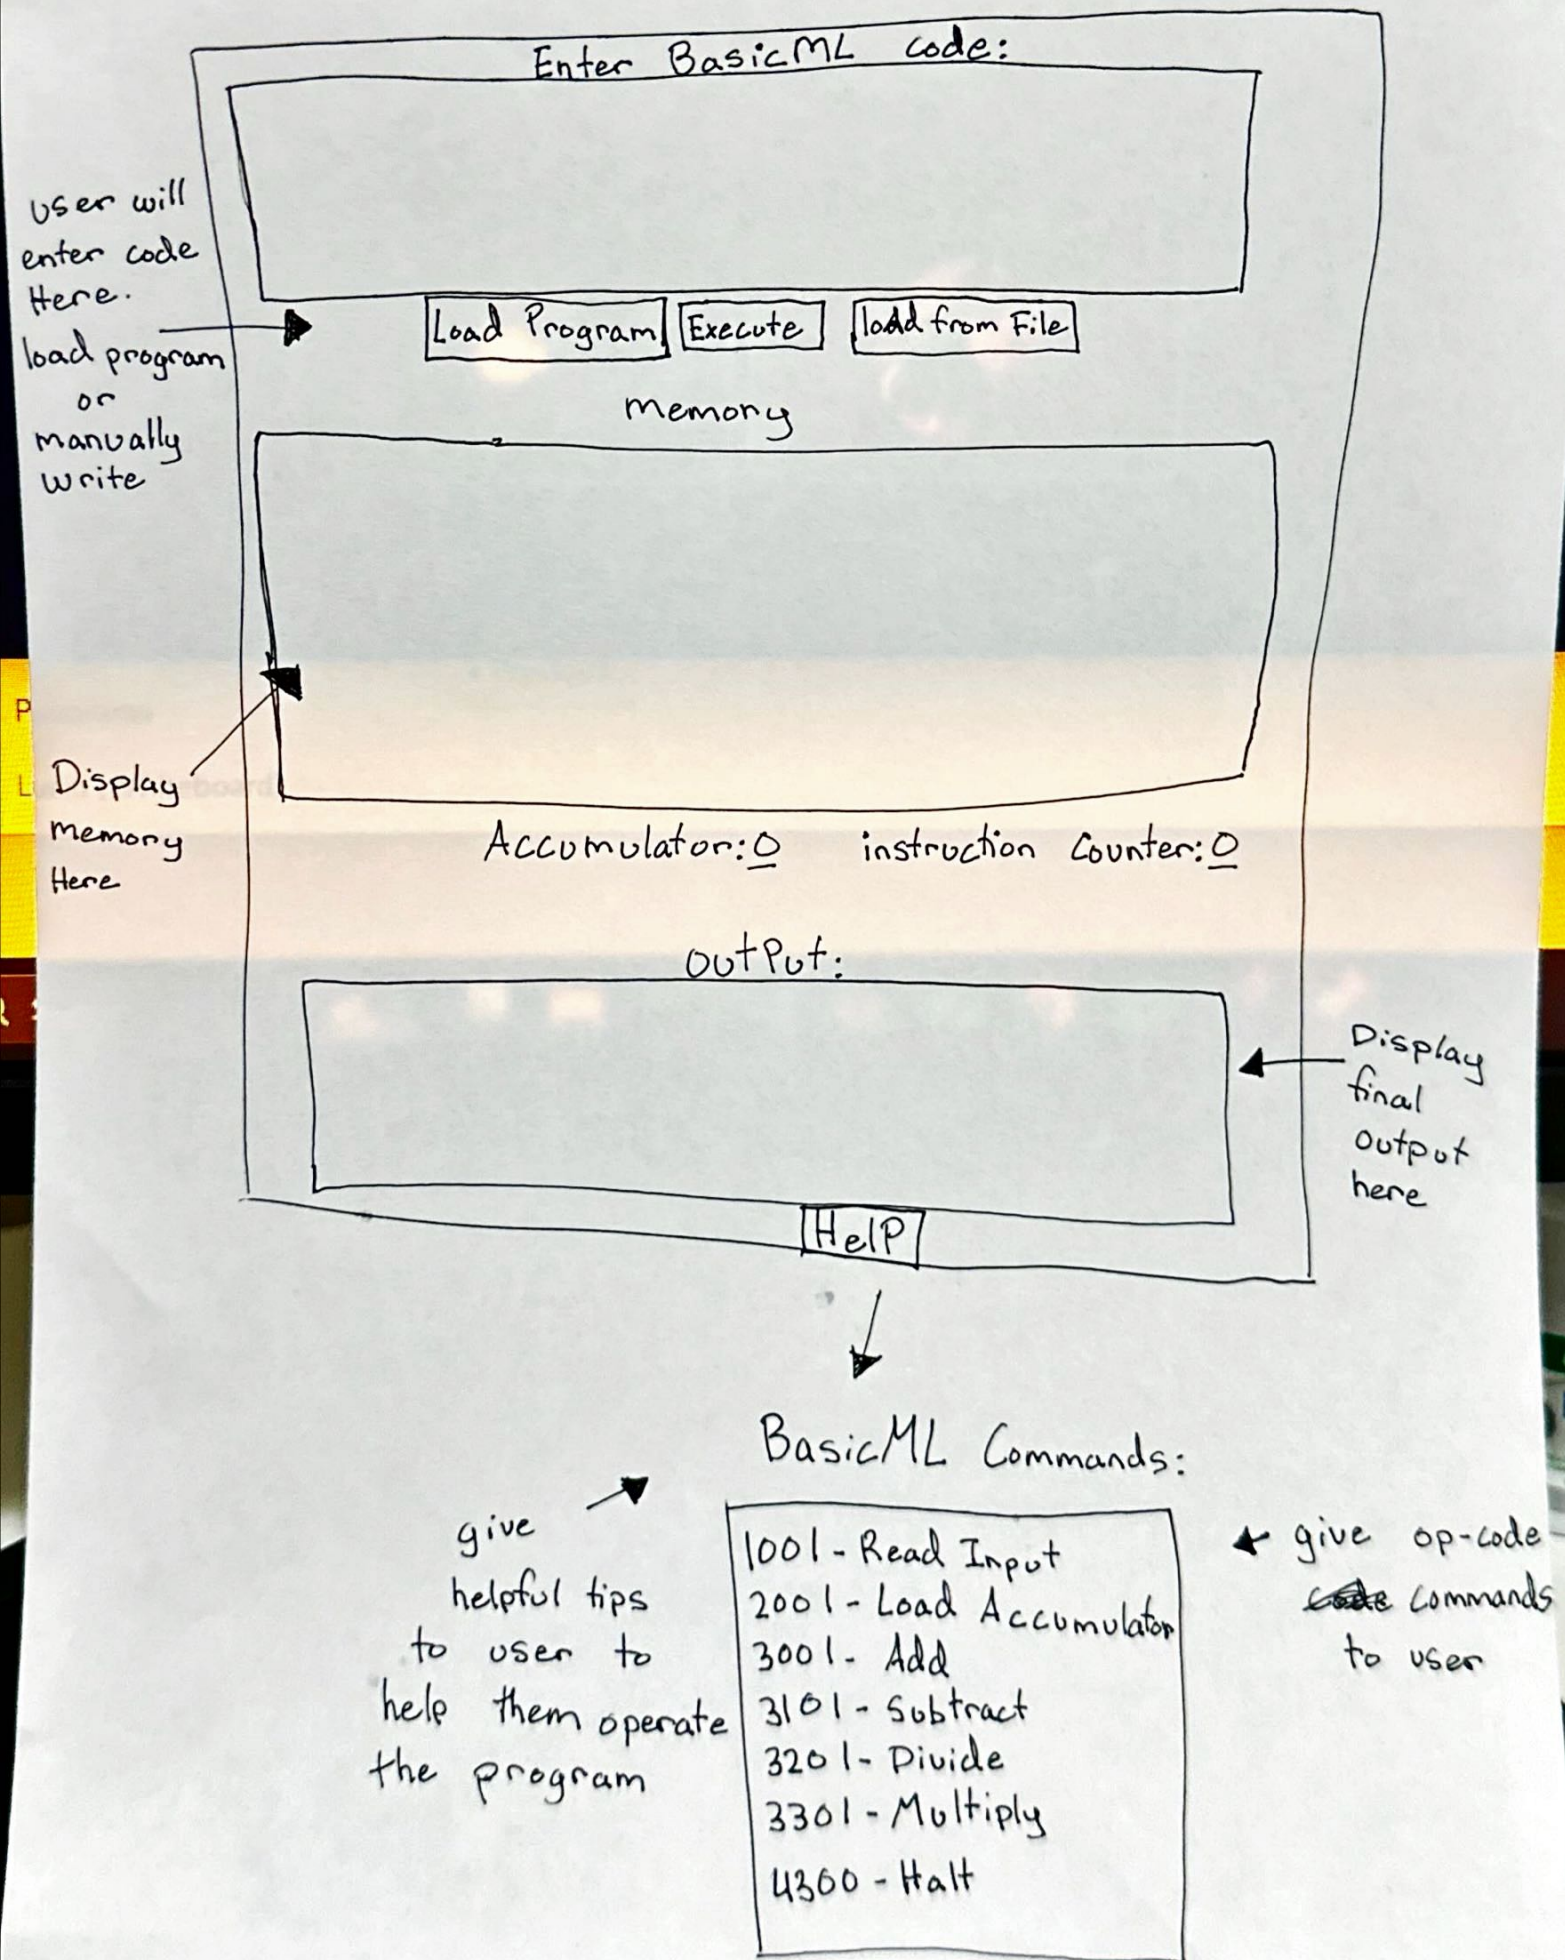 Enter BasicML code:
user will
enter code
Here.
load program
or
manually
write
Load Program
Execute
load from File
memory
Display
memory
Here
Accumulator: 0 instruction Counter: 0
outPut:
Display
final
output
here
HelP
BasicML Commands:
give
helpful tips
to user to
help them operate
the program
1001 - Read Input
2001 - Load Accumulator
3001 - Add
3101 - Subtract
3201 - Divide
3301 - Multiply
4300 - Halt
give op-code
commands
to user